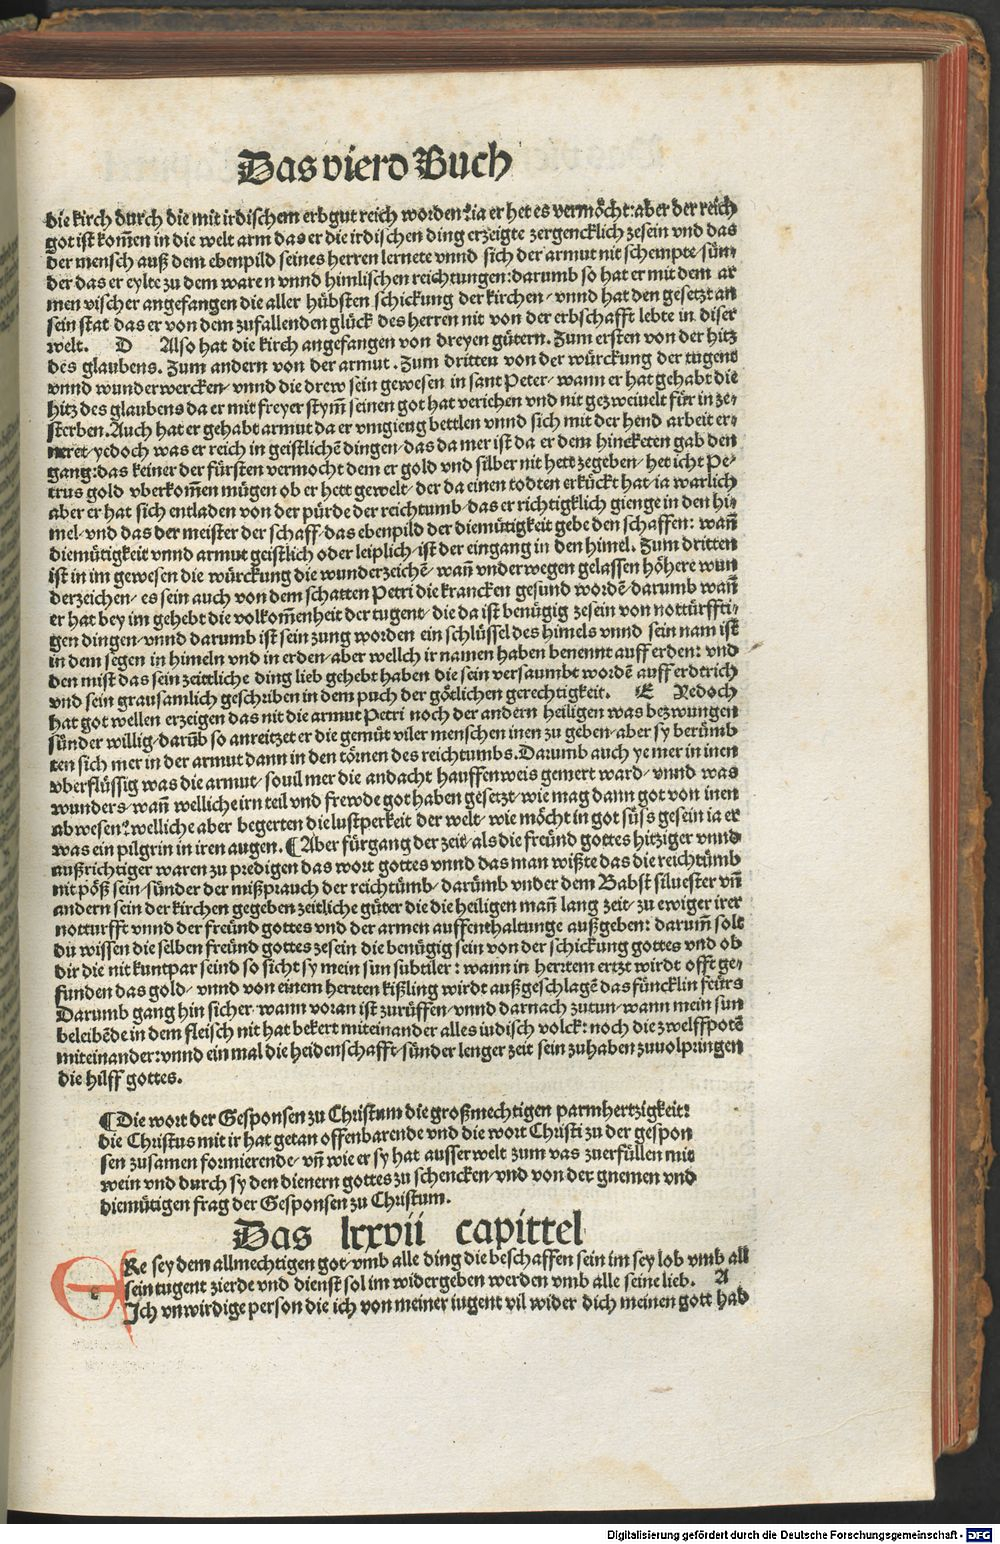 Das vierd Buch
die kirch durch die mit irdischem erbgut reich worden? ia er het es vermöcht: aber der reich
got ist kom̄en in die welt arm das er die irdischen ding erzeigte zergencklich zesein vnd das
der mensch auß dem ebenpild seines herren lernete vnnd sich der armut nit schempte/ sün⸗
der das er eylte zu dem waren vnnd himlischen reichtungen: darumb so hat er mit dem ar
men vischer angefangen die aller hübsten schickung der kirchen/ vnnd hat den gesetzt an
sein stat das er von dem zufallenden glück des herren nit von der erbschafft lebte in diser
welt. D Also hat die kirch angefangen von dreyen gütern. Zum ersten von der hitz
des glaubens. Zum andern von der armut. Zum dritten von der würckung der tugent
vnnd wunderwercken/ vnnd die drew sein gewesen in sant Peter/ wann er hat gehabt die
hitz des glaubens da er mit freyer stym̄ seinen got hat veriehen vnd nit gezweiuelt für in ze⸗
sterben. Auch hat er gehabt armut da er vmgieng bettlen vnnd sich mit der hend arbeit er⸗
neret/ yedoch was er reich in geistlichē dingen/ das da mer ist da er dem hincketen gab den
gang: das keiner der fürsten vermocht dem er gold vnd silber nit hett zegeben/ het icht Pe⸗
trus gold vberkom̄en mügen ob er hett gewelt/ der da einen todten erkückt hat/ ia warlich
aber er hat sich entladen von der pürde der reichtumb/ das er richtigklich gienge in den hi⸗
mel/ vnd das der meister der schaff/ das ebenpild der diemütigkeit gebe den schaffen: wan̄
diemütigkeit vnnd armut geistlich oder leiplich/ ist der eingang in den himel. Zum dritten
ist in im gewesen die würckung die wunderzeichē/ wan̄ vnderwegen gelassen höhere wun
derzeichen/ es sein auch von dem schatten Petri die krancken gesund wordē/ darumb wan̄
er hat bey im gehebt die volkom̄enheit der tugent/ die da ist benügig zesein von nottürffti⸗
gen dingen/ vnnd darumb ist sein zung worden ein schlüssel des himels vnnd sein nam ist
in dem segen in himeln vnd in erden/ aber wellch ir namen haben benennt auff erden: vnd
den mist das sein zeittliche ding lieb gehebt haben die sein versaumbt wordē auff erdtrich
vnd sein grausamlich geschriben in dem puch der götlichen gerechtigkeit. E Yedoch
hat got wellen erzeigen das nit die armut Petri noch der andern heiligen was bezwungen
sünder willig/ darūb so anreitzet er die gemüt viler menschen inen zu geben/ aber sy berümb
ten sich mer in der armut dann in den törnen des reichtumbs. Darumb auch ye mer in inen
vberflüssig was die armut/ souil mer die andacht hauffenweis gemert ward/ vnnd was
wunders/ wan̄ welliche irn teil vnd frewde got haben gesetzt/ wie mag dann got von inen
abwesen? welliche aber begerten die lustperkeit der welt/ wie möcht in got süss gesein ia er
was ein pilgrin in iren augen. ¶ Aber fürgang der zeit/ als die freünd gottes hitziger vnnd
außrichtiger waren zu predigen das wort gottes vnnd das man wißte das die reichtümb
nit pöß sein/ sünder der mißprauch der reichtümb/ darümb vnder dem Babst siluester vn̄
andern sein der kirchen gegeben zeitliche güter die die heiligen man̄ lang zeit/ zu ewiger irer
notturfft vnnd der freünd gottes vnd der armen auffenthaltunge außgeben: darum̄ solt
du wissen die selben freünd gottes zesein die benügig sein von der schickung gottes vnd ob
dir die nit kuntpar seind so sicht sy mein sun subtiler: wann in herrtem ertzt wirdt offt ge⸗
funden das gold/ vnnd von einem herrten kißling wirdt außgeschlagē das füncklin feürs
Darumb gang hin sicher/ wann voran ist zurüffen/ vnnd darnach zutun/ wann mein sun
beleibēde in dem fleisch nit hat bekert miteinander alles iudisch volck: noch die zwelffpotē
miteinander: vnnd ein mal die heidenschafft/ sünder lenger zeit sein zuhaben zuuolpringen
die hilff gottes.
¶ Die wort der Gesponsen zu Christum die großmechtigen parmhertzigkeit:
die Christus mit ir hat getan offenbarende vnd die wort Christi zu der gespon
sen zusamen formierende/ vn̄ wie er sy hat ausserwelt zum vas zuerfüllen mit
wein vnd durch sy den dienern gottes zu schencken/ vnd von der gnemen vnd
diemütigen frag der Gesponsen zu Christum.
Das lxxvii capittel
ERe sey dem allmechtigen got/ vmb alle ding die beschaffen sein im sey lob vmb all
sein tugent zierde vnd dienst sol im widergeben werden vmb alle seine lieb. A
Ich vnwirdige person die ich von meiner iugent vil wider dich meinen gott hab
Digitalisierung gefördert durch die Deutsche Forschungsgemeinschaft - DFG